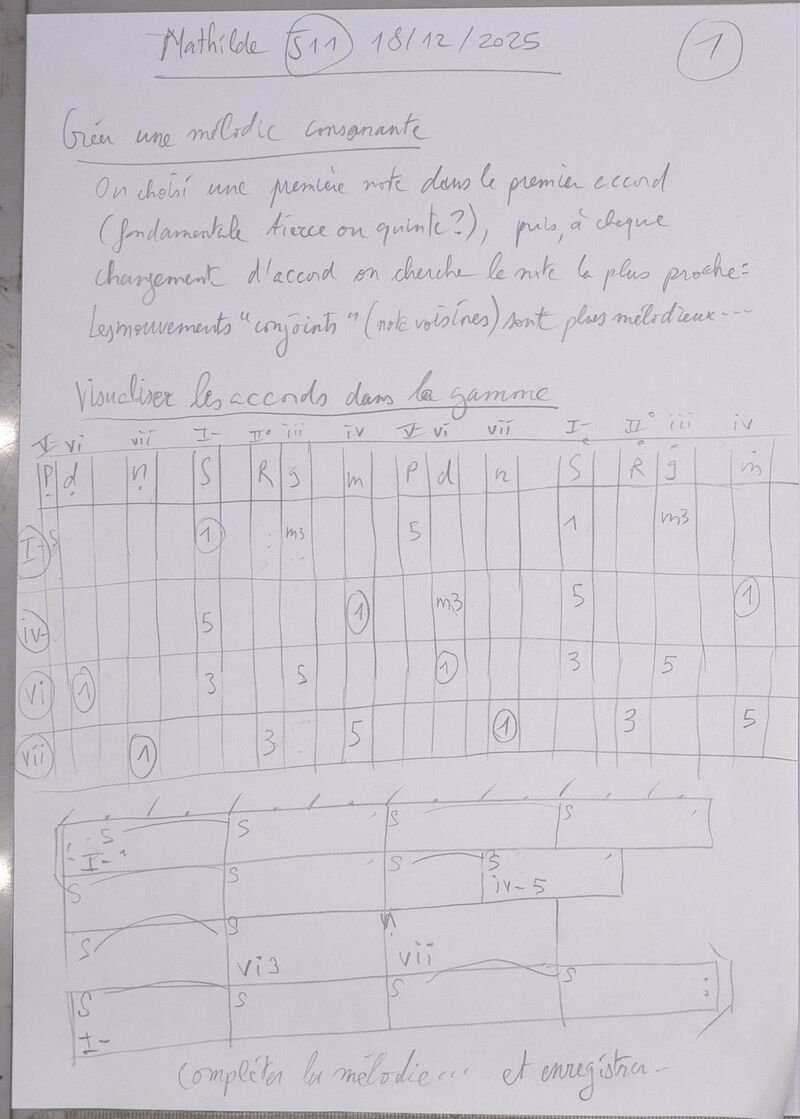 Mathilde S11 18/12/2025
1
Créer une mélodie consonante
On choisi une première note dans le premier accord
(fondamentale tierce ou quinte?), puis, à chaque
changement d'accord on cherche la note la plus proche:
Les mouvements "conjoints" (note voisines) sont plus mélodieux...
Visualiser les accords dans la gamme
V- vi vii I- II° iii iv V- vi vii I- II° iii iv
P d n S R g m P d n S R g m
I- 5 1 m3 5 1 m3
iv- 5 1 m3 5 1
vi 1 3 5 1 3 5
vii 1 3 5 1 3 5
S S S S
I-
S S S S
iv-5
S S
vi3 vii
S S S S
I-
Compléter la mélodie... et enregistrer..